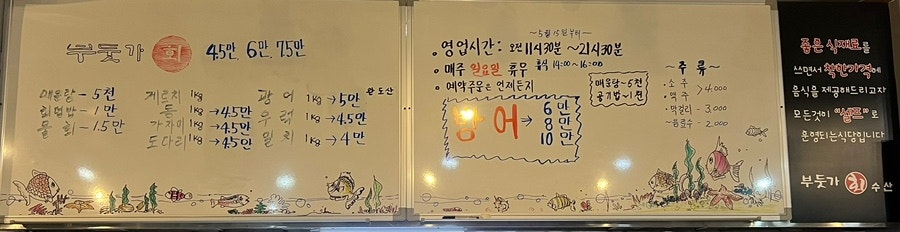 부둣가 회 4.5만, 6만, 7.5만
매운탕 - 5천
회덮밥 - 1만
물회 - 1.5만
게르치 1kg
돔 1kg → 4.5만
가자미 1kg → 4.5만
도다리 1kg → 4.5만
광어 1kg → 5만 완도산
우럭 1kg → 4.5만
1kg → 4만
~ 5월 15일부터 ~
• 영업시간 : 오전 11시30분 ~ 21시30분
• 매주 일요일 휴무 휴식 14:00 ~ 16:00
• 예약주문은 언제든지
방어 → 6만
8만
10만
매운탕 ~ 5천
공기밥 ~ 1천
~ 주류 ~
- 소주
- 맥주 > 4.000
- 막걸리 - 3.000
- 음료수 - 2.000
좋은 식재료를
쓰면서 착한가격에
음식을 제공해드리고자
모든것이 "셀프"로
운영되는식당입니다
부둣가 회 수산